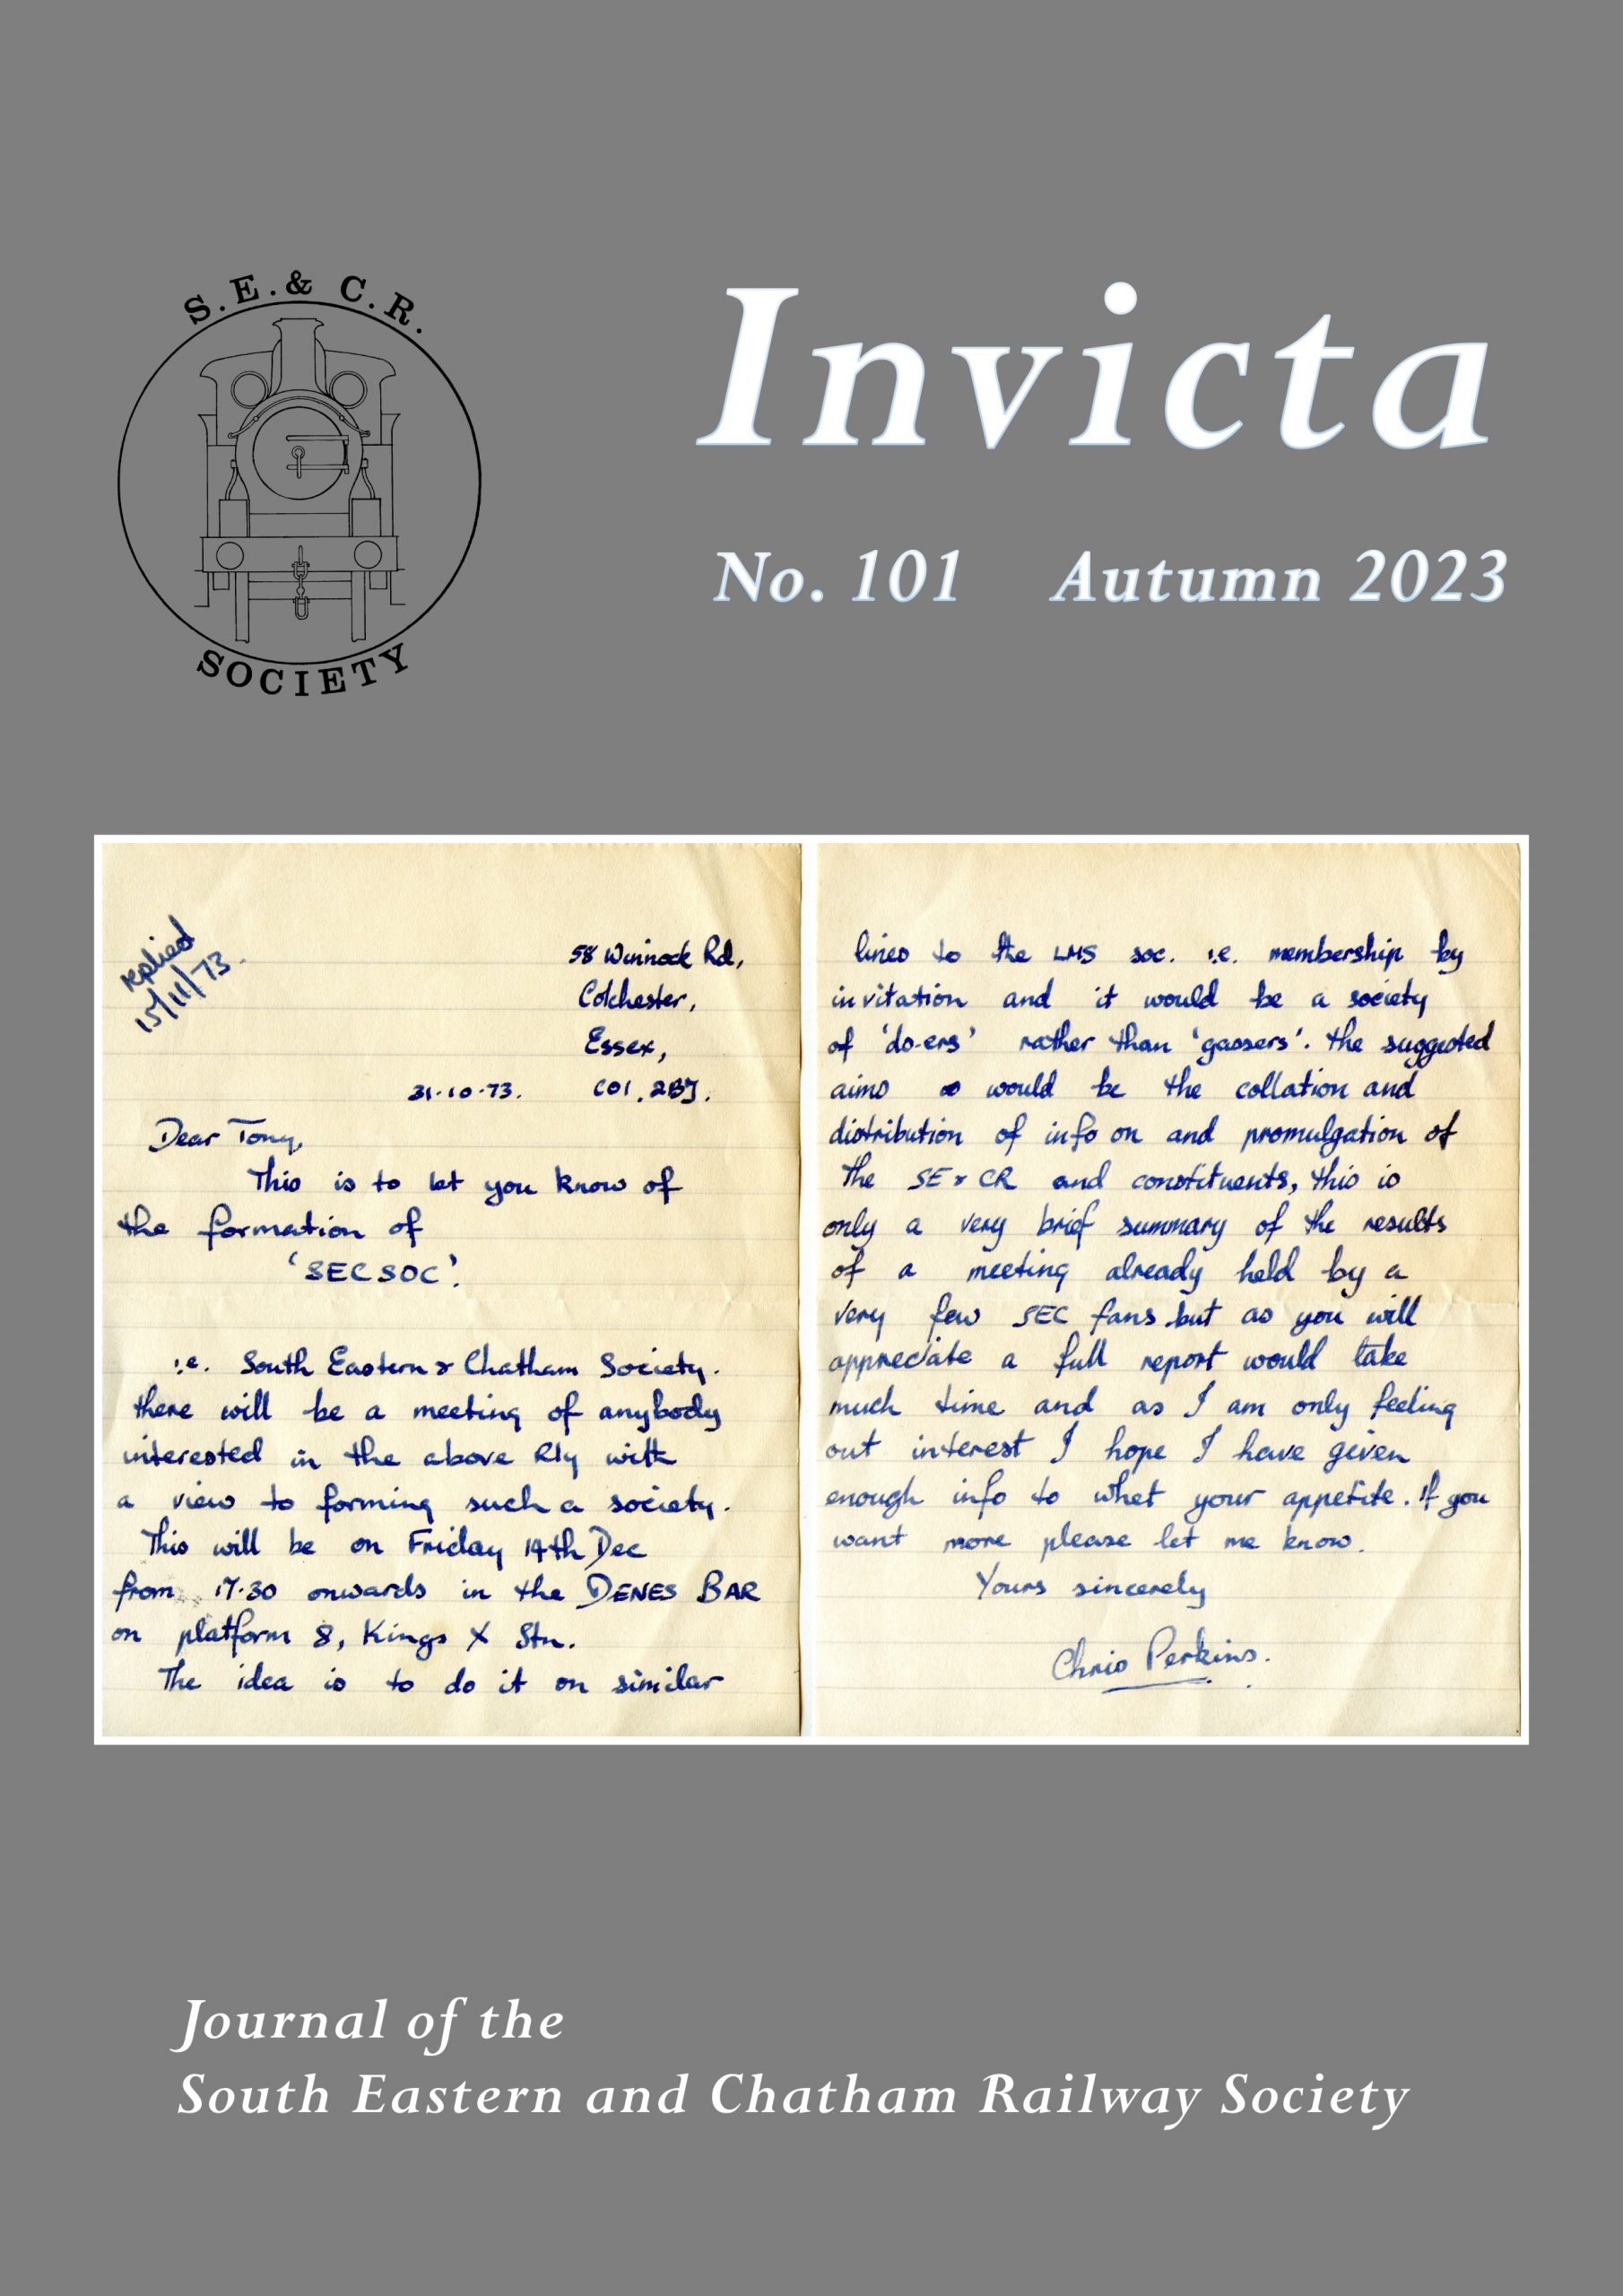 S.E.& C.R.
SOCIETY
Invicta
No. 101 Autumn 2023
replied
15/11/73.
58 Winnock Rd,
Colchester,
Essex,
31.10.73. CO1. 2BJ.
Dear Tony,
This is to let you know of
the formation of
'SECSOC'.
i.e. South Eastern & Chatham Society.
there will be a meeting of anybody
interested in the above Rly with
a view to forming such a society.
This will be on Friday 14th Dec
from 17.30 onwards in the DENES BAR
on platform 8, Kings X Stn.
The idea is to do it on similar
lines to the LMS soc. i.e. membership by
invitation and it would be a society
of 'do-ers' rather than 'gassers'. the suggested
aims would be the collation and
distribution of info on and promulgation of
the SE & CR and constituents, this is
only a very brief summary of the results
of a meeting already held by a
very few SEC fans but as you will
appreciate a full report would take
much time and as I am only feeling
out interest I hope I have given
enough info to whet your appetite. If you
want more please let me know.
Yours sincerely
Chris Perkins.
Journal of the
South Eastern and Chatham Railway Society